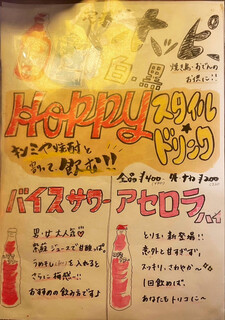 ホッピー
白.黒
焼き鳥・おでんの
お供に!!
HOPPY スタイル
ドリンク
キンミヤ焼酎と
割って、飲む!!
全品¥400- 外 ナカ¥200
バイスサワー
男・女 大人気♡
紫蘇ジュースで甘酸っぱ。
うめぼしを入れると
さらに梅感ー!!
おすすめの飲み方です♪
アセロラハイ
とりま新登場!!
意外と甘すぎず、
スッキリ、さわやか〜
1回飲めば、
あなたもトリコに〜